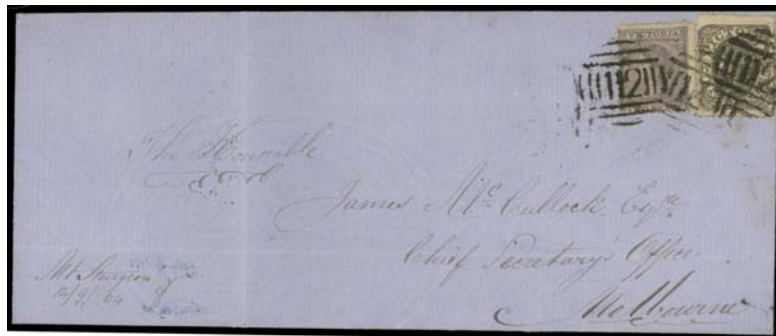 VICTORIA
112
112
The Honorable
James McCullock Esqre
Chief Secretary's Office
Melbourne
Mt Sturgeon
14/9/64